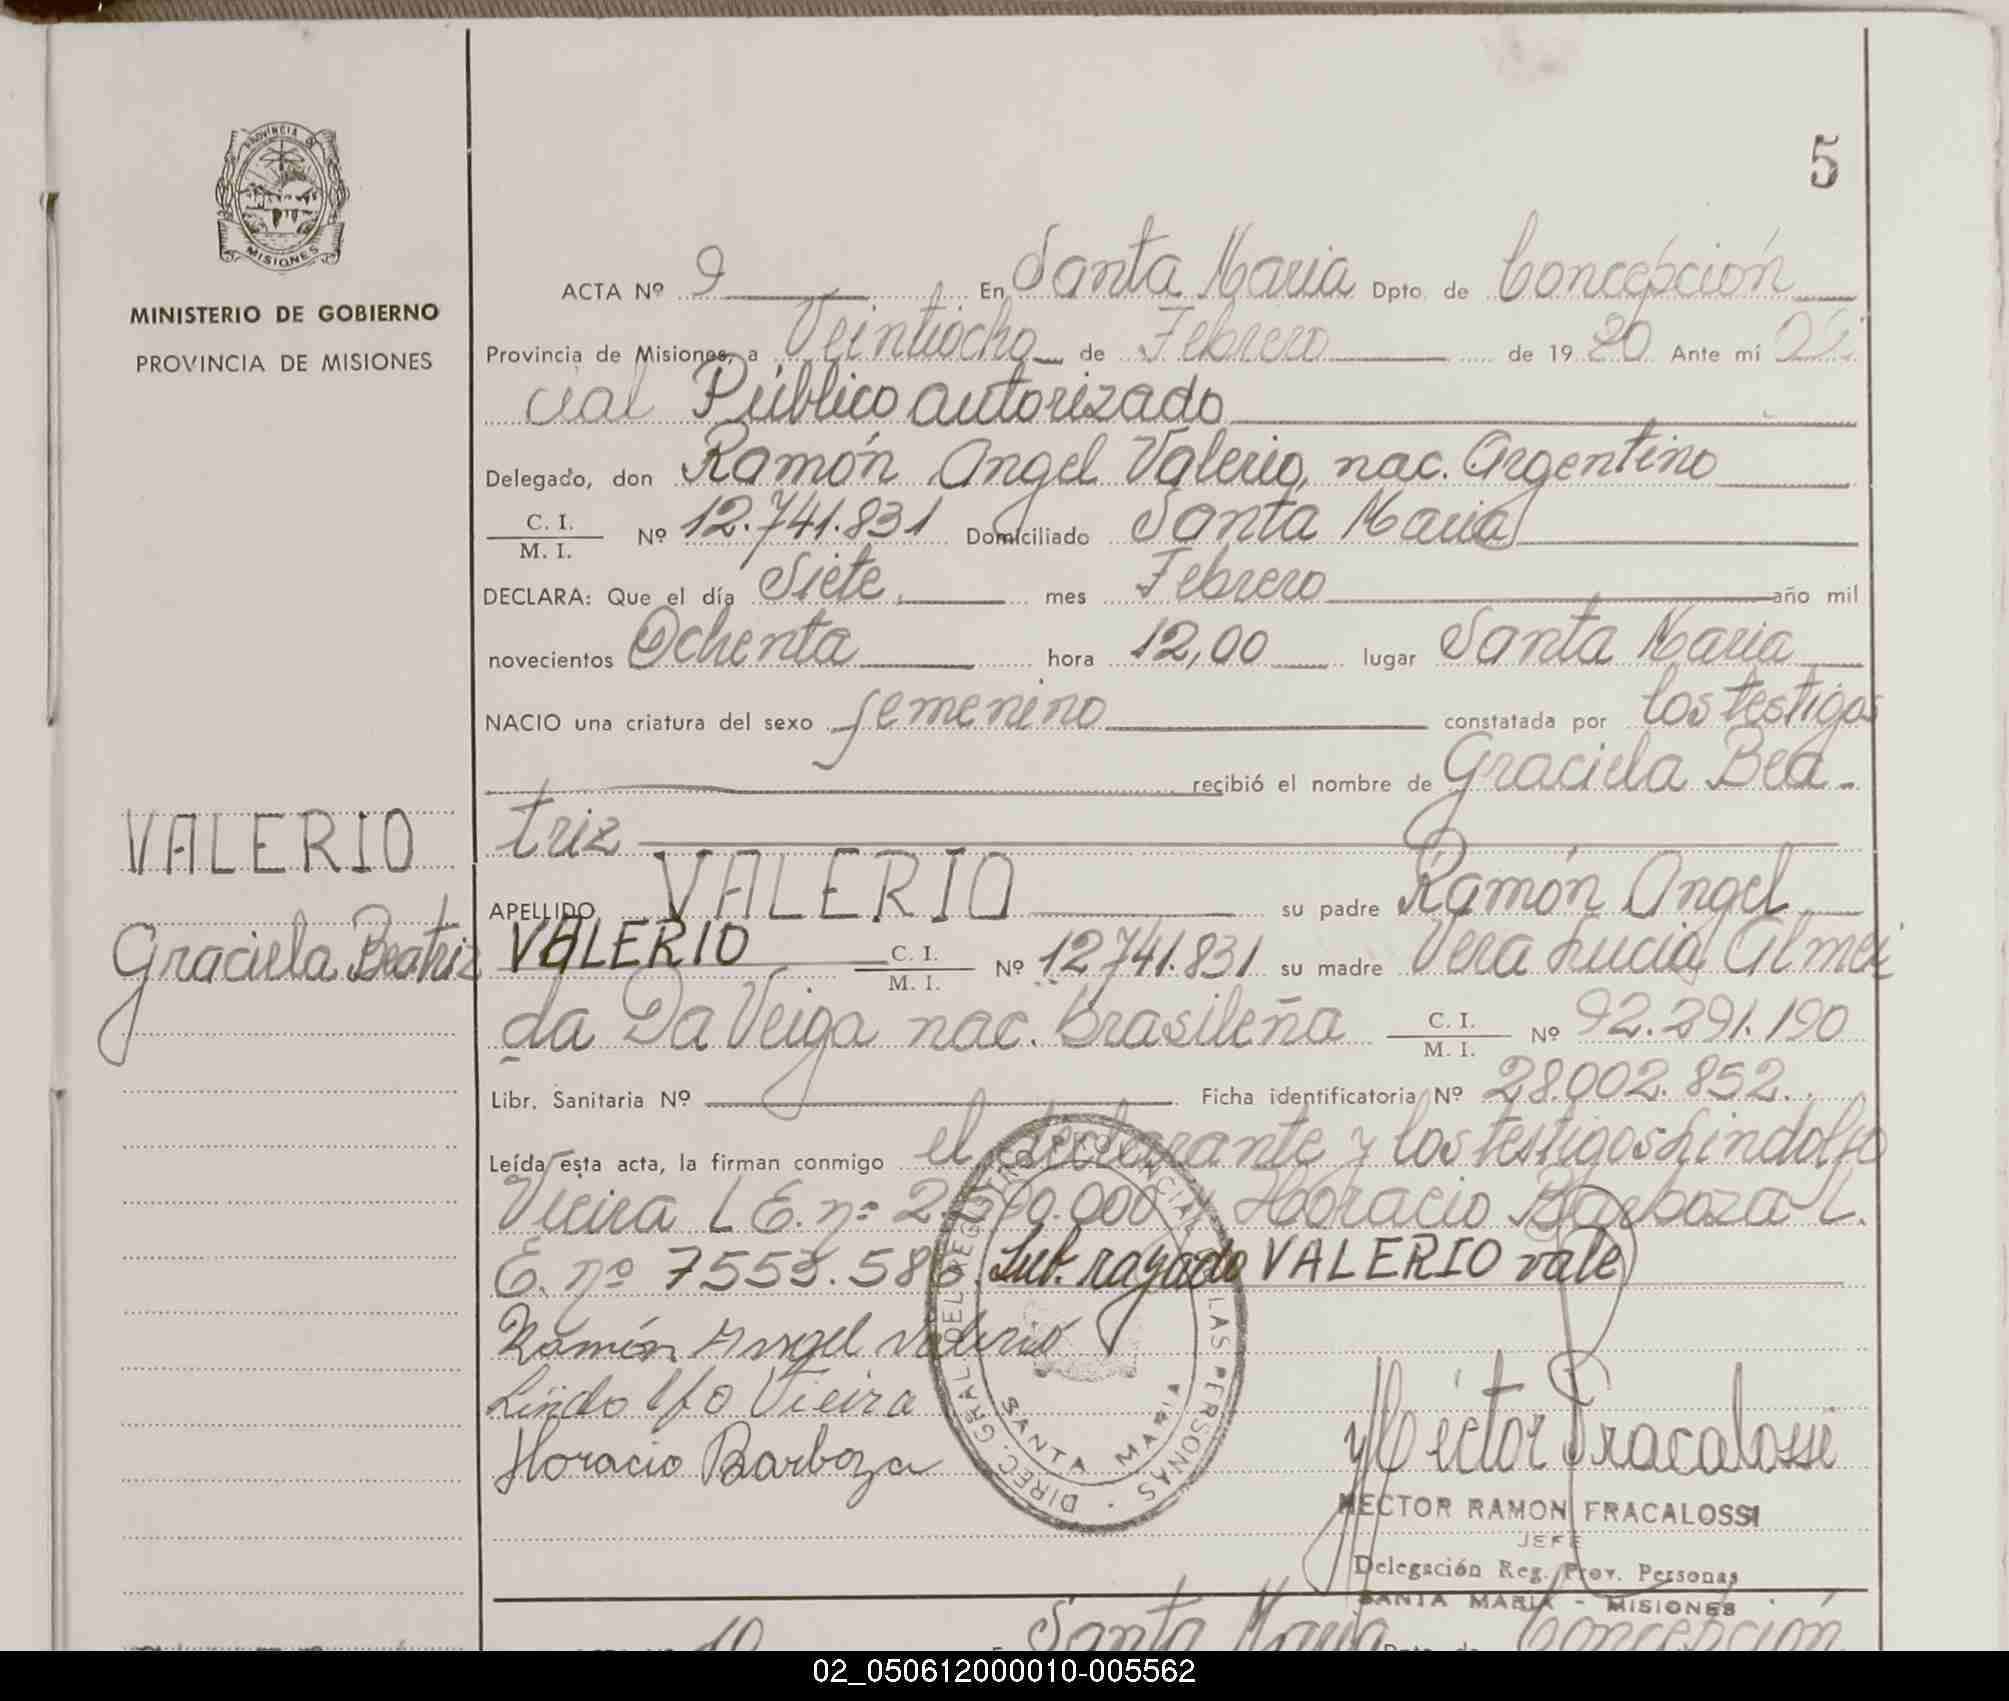 5
PROVINCIA DE
MISIONES
MINISTERIO DE GOBIERNO
PROVINCIA DE MISIONES
ACTA Nº 9 En Santa Maria Dpto. de Concepción
Provincia de Misiones, a Veintiocho de Febrero de 19 80 Ante mí Ofi
cial Público autorizado
Delegado, don Ramón Angel Valerio, nac. Argentino
C. I.
M. I. Nº 12.741.831 Domiciliado Santa Maria
DECLARA: Que el día Siete mes Febrero año mil
novecientos Ochenta hora 12,00 lugar Santa Maria
NACIO una criatura del sexo femenino constatada por los testigos
recibió el nombre de Graciela Bea-
triz
APELLIDO VALERIO su padre Ramón Angel
VALERIO C. I. M. I. Nº 12741.831 su madre Vera Lucia Almei
da Da Veiga nac. brasileña C. I. M. I. Nº 92.291.190
Libr. Sanitaria Nº Ficha identificatoria Nº 28.002.852.
Leída esta acta, la firman conmigo el declarante y los testigos Lindolfo
Vieira L E. nº 2.590.000 y Horacio Barboza L.
E. nº 7553.586. Sub. rayado VALERIO vale
Ramón Angel Valerio
Lindolfo Vieira
Horacio Barboza
Héctor Fracalossi
HECTOR RAMON FRACALOSSI
JEFE
Delegación Reg. Prov. Personas
SANTA MARIA - MISIONES
DIREC. GRAL. DEL REG. PROVINCIAL LAS PERSONAS
SANTA MARIA
VALERIO
Graciela Beatriz
10 Santa Maria Dpto. de Concepción
02_050612000010-005562